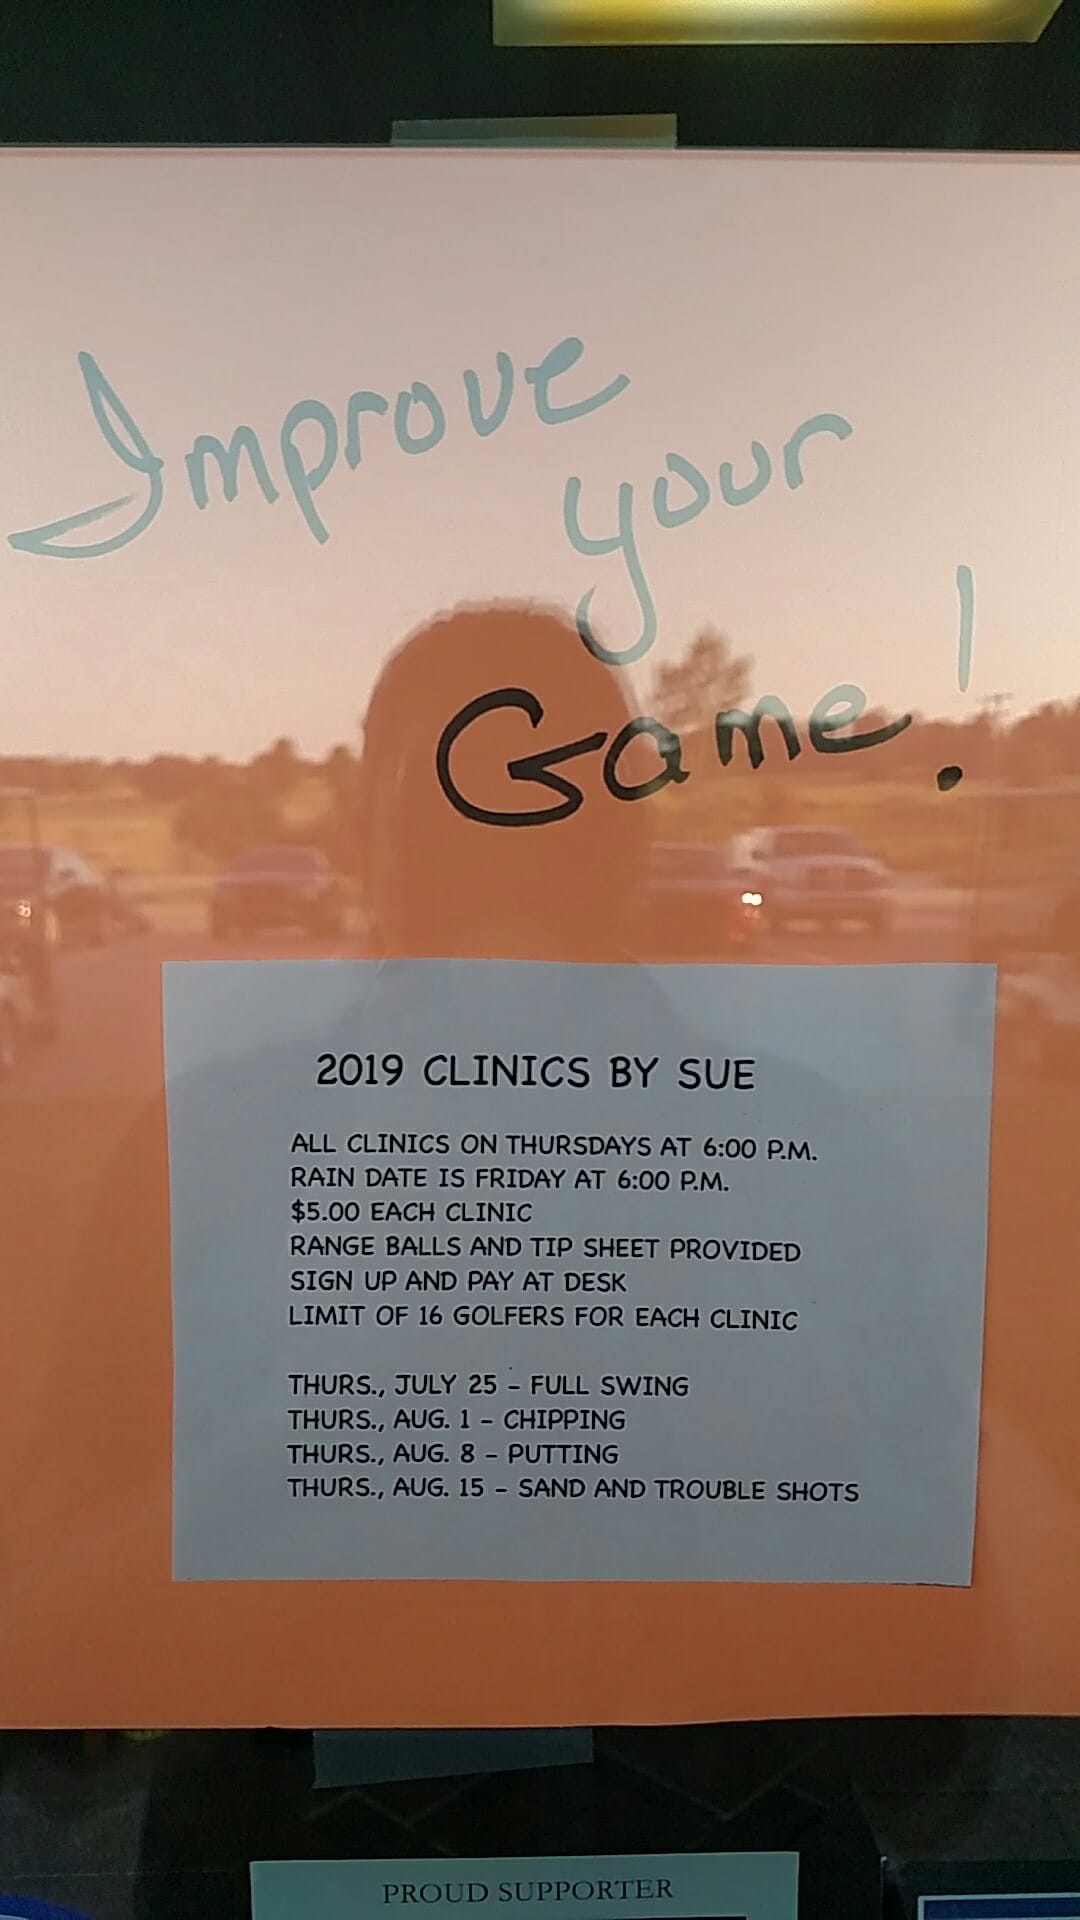 Improve
your
Game!
2019 CLINICS BY SUE
ALL CLINICS ON THURSDAYS AT 6:00 P.M.
RAIN DATE IS FRIDAY AT 6:00 P.M.
$5.00 EACH CLINIC
RANGE BALLS AND TIP SHEET PROVIDED
SIGN UP AND PAY AT DESK
LIMIT OF 16 GOLFERS FOR EACH CLINIC
THURS., JULY 25 - FULL SWING
THURS., AUG. 1 - CHIPPING
THURS., AUG. 8 - PUTTING
THURS., AUG. 15 - SAND AND TROUBLE SHOTS
PROUD SUPPORTER